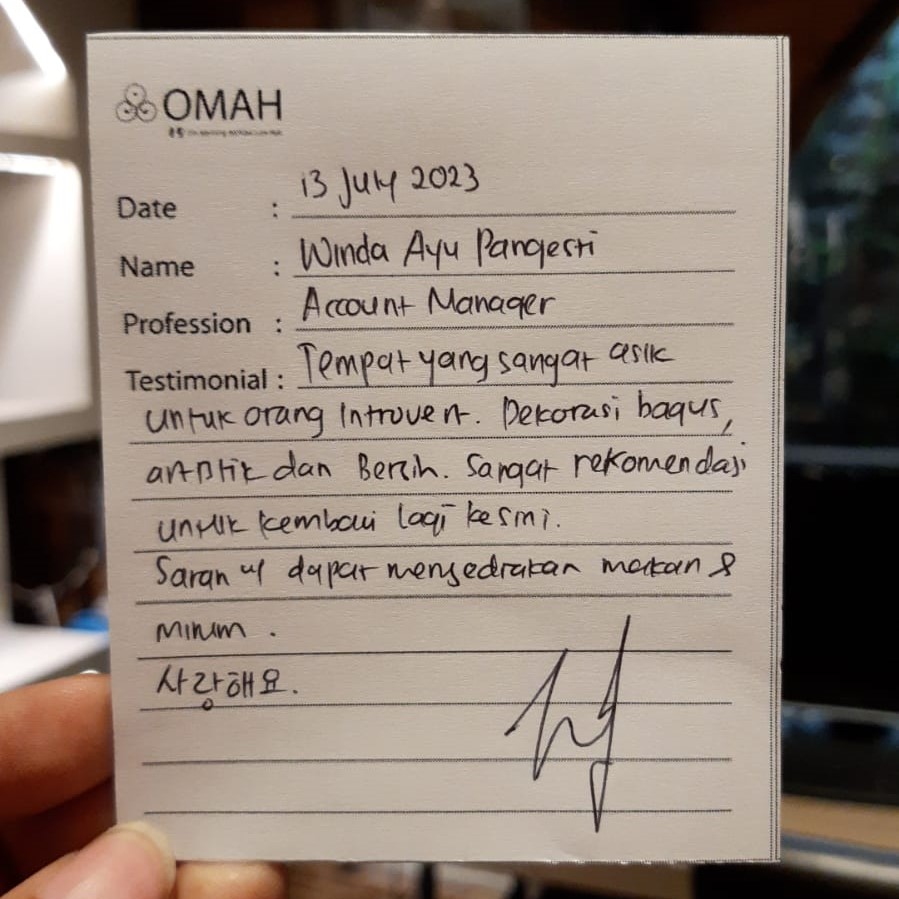 OMAH
Date : 13 July 2023
Name : Winda Ayu Pangesti
Profession : Account Manager
Testimonial : Tempat yang sangat asik
untuk orang Introvert. Dekorasi bagus,
artistik dan Bersih. Sangat rekomendasi
untuk kembali lagi kesini.
Saran u/ dapat menyediakan makan &
minum.
사랑해요.